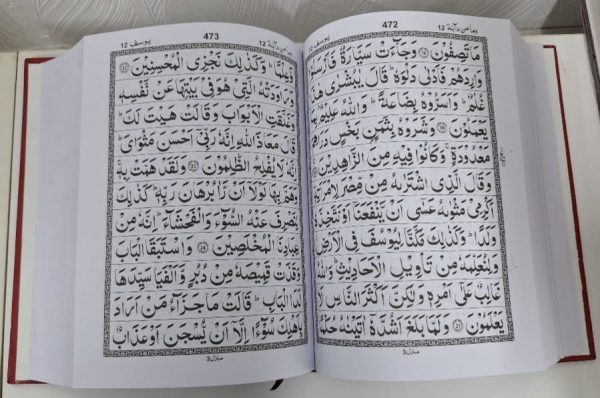 یوسف 12
472
وما من دآبة 12
مَا تَصِفُوْنَ ﴿۱۸﴾ وَجَآءَتْ سَيَّارَةٌ فَاَرْسَلُوْا
وَارِدَهُمْ فَاَدْلٰى دَلْوَهٗ ؕ قَالَ يٰبُشْرٰى هٰذَا
غُلٰمٌ ؕ وَاَسَرُّوْهُ بِضَاعَةً ؕ وَاللّٰهُ عَلِيْمٌۢ بِمَا
يَعْمَلُوْنَ ﴿۱۹﴾ وَشَرَوْهُ بِثَمَنٍۭ بَخْسٍ دَرَاهِمَ
مَعْدُوْدَةٍ ۚ وَكَانُوْا فِيْهِ مِنَ الزّٰهِدِيْنَ ﴿۲۰﴾
وَقَالَ الَّذِى اشْتَرٰىهُ مِنْ مِّصْرَ لِامْرَاَتِهٖۤ
اَكْرِمِىْ مَثْوٰىهُ عَسٰٓى اَنْ يَّنْفَعَنَاۤ اَوْ نَتَّخِذَهٗ
وَلَدًا ؕ وَكَذٰلِكَ مَكَّنَّا لِيُوْسُفَ فِى الْاَرْضِ
وَلِنُعَلِّمَهٗ مِنْ تَاْوِيْلِ الْاَحَادِيْثِ ؕ وَاللّٰهُ
غَالِبٌ عَلٰٓى اَمْرِهٖ وَلٰكِنَّ اَكْثَرَ النَّاسِ لَا
يَعْلَمُوْنَ ﴿۲۱﴾ وَلَمَّا بَلَغَ اَشُدَّهٗۤ اٰتَيْنٰهُ حُكْمًا
منزل ۳
یوسف 12
473
وما من دآبة 12
وَّعِلْمًا ؕ وَكَذٰلِكَ نَجْزِى الْمُحْسِنِيْنَ ﴿۲۲﴾
وَرَاوَدَتْهُ الَّتِىْ هُوَ فِىْ بَيْتِهَا عَنْ نَّفْسِهٖ
وَغَلَّقَتِ الْاَبْوَابَ وَقَالَتْ هَيْتَ لَكَ ؕ
قَالَ مَعَاذَ اللّٰهِ اِنَّهٗ رَبِّىْۤ اَحْسَنَ مَثْوَاىَ ؕ
اِنَّهٗ لَا يُفْلِحُ الظّٰلِمُوْنَ ﴿۲۳﴾ وَلَقَدْ هَمَّتْ بِهٖ ۚ
وَهَمَّ بِهَا لَوْلَاۤ اَنْ رَّاٰ بُرْهَانَ رَبِّهٖ ؕ كَذٰلِكَ
لِنَصْرِفَ عَنْهُ السُّوْٓءَ وَالْفَحْشَآءَ ؕ اِنَّهٗ مِنْ
عِبَادِنَا الْمُخْلَصِيْنَ ﴿۲۴﴾ وَاسْتَبَقَا الْبَابَ
وَقَدَّتْ قَمِيْصَهٗ مِنْ دُبُرٍ وَّاَلْفَيَا سَيِّدَهَا
لَدَا الْبَابِ ؕ قَالَتْ مَا جَزَآءُ مَنْ اَرَادَ
بِاَهْلِكَ سُوْٓءًا اِلَّاۤ اَنْ يُّسْجَنَ اَوْ عَذَابٌ
منزل ۳